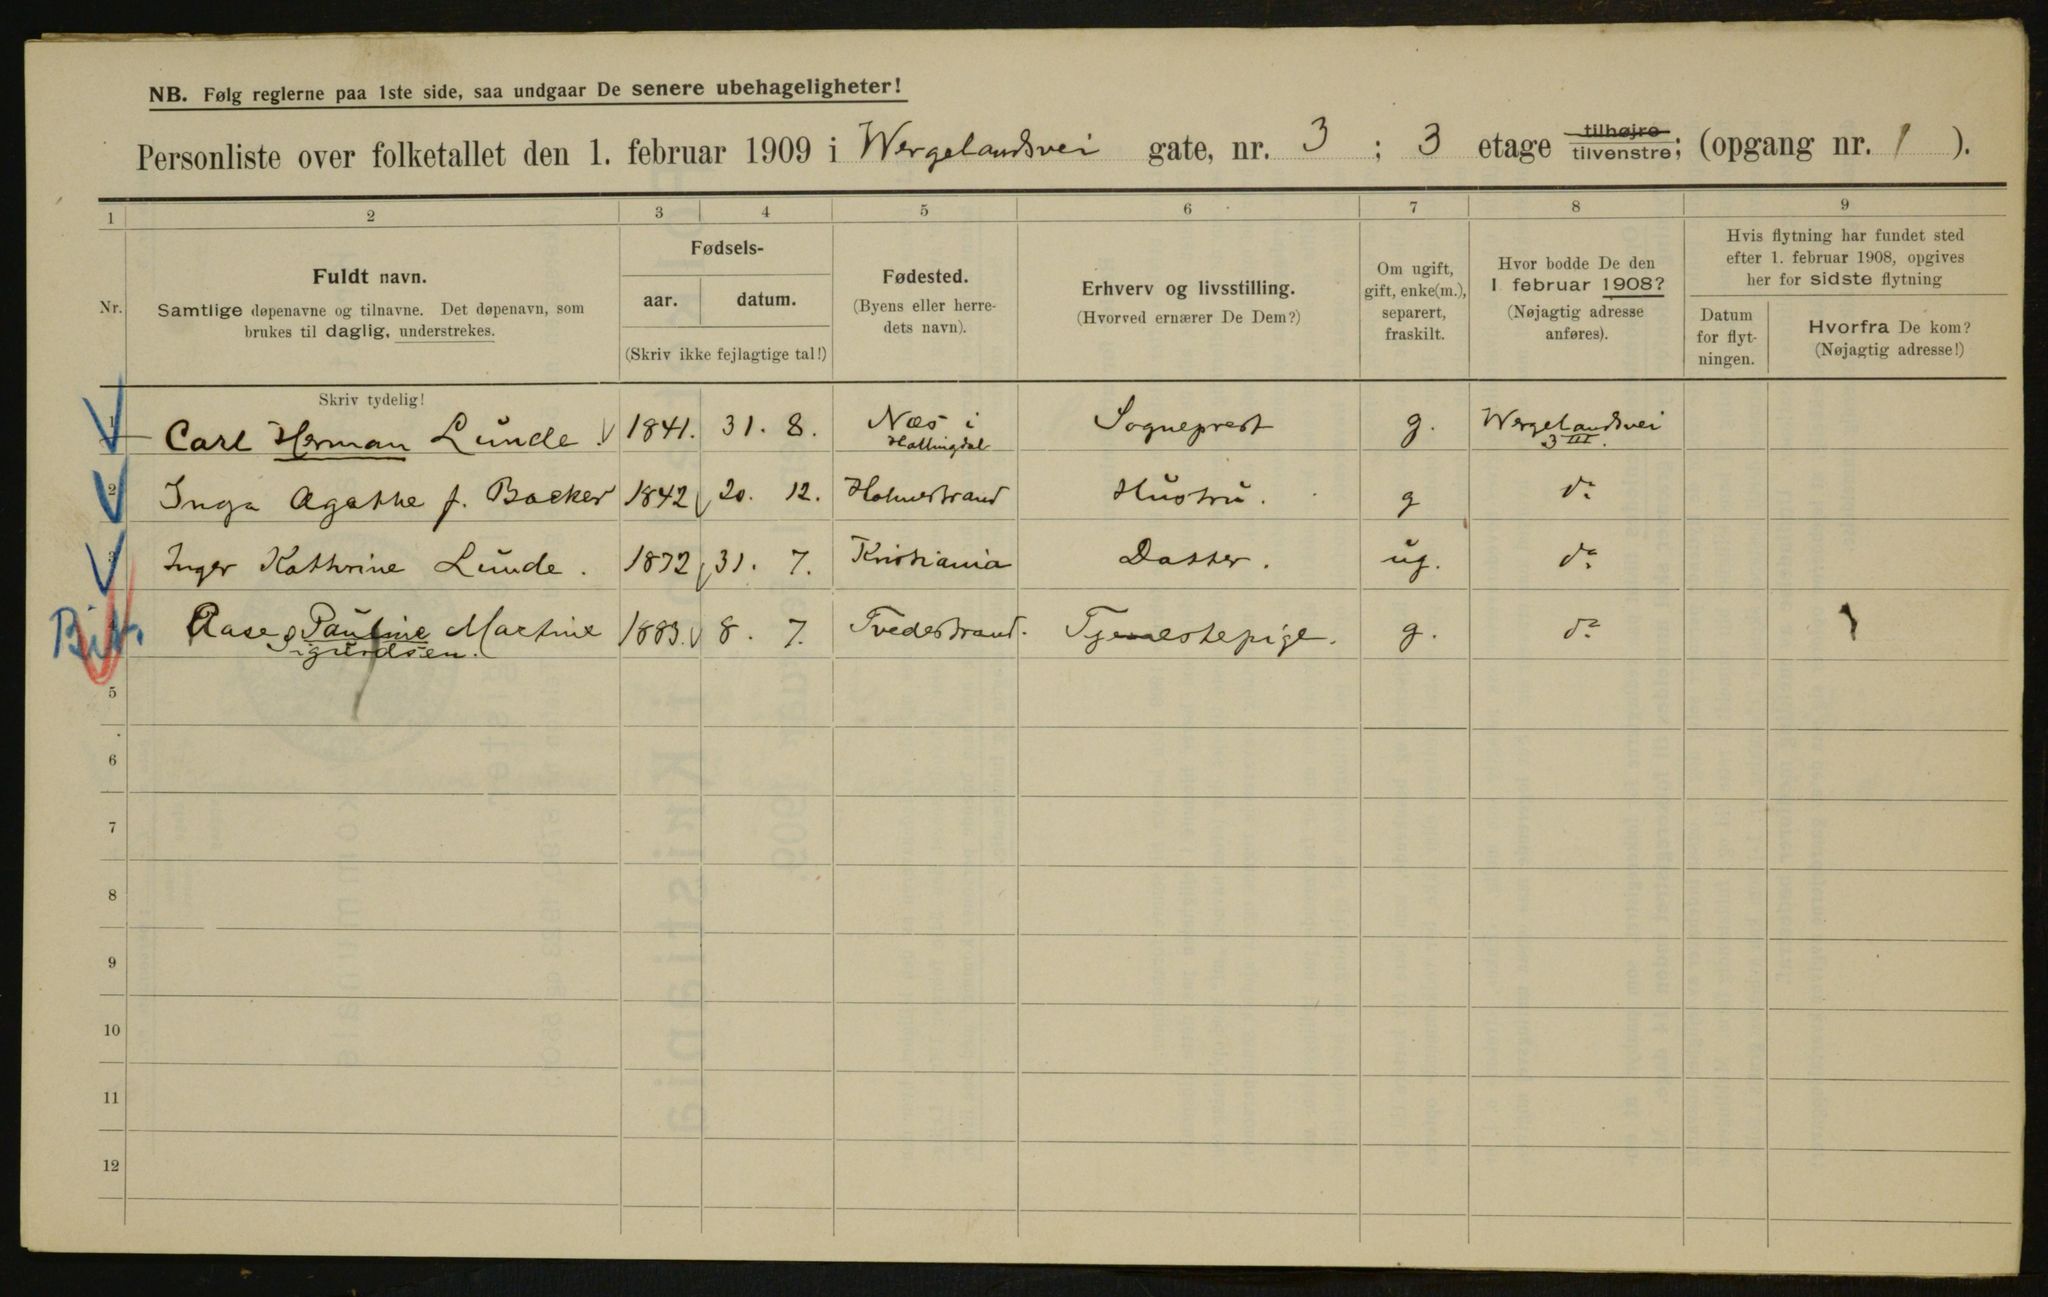 NB. Følg reglerne paa 1ste side, saa undgaar De senere ubehageligheter!
Personliste over folketallet den 1. februar 1909 i Wergelandsvei gate, nr. 3 ; 3 etage tilhøjre tilvenstre; (opgang nr. 1 ).
1 2 3 4 5 6 7 8 9
Nr.
Fuldt navn.
Samtlige døpenavne og tilnavne. Det døpenavn, som
brukes til daglig, understrekes.
Skriv tydelig!
Fødsels-
aar. datum.
(Skriv ikke fejlagtige tal!)
Fødested.
(Byens eller herre-
dets navn).
Erhverv og livsstilling.
(Hvorved ernærer De Dem?)
Om ugift,
gift, enke(m.),
separert,
fraskilt.
Hvor bodde De den
1 februar 1908?
(Nøjagtig adresse
anføres).
Hvis flytning har fundet sted
efter 1. februar 1908, opgives
her for sidste flytning
Datum
for flyt-
ningen.
Hvorfra De kom?
(Nøjagtig adresse!)
1 Carl Herman Lunde. 1841. 31. 8. Næs i Hallingdal Sogneprest g. Wergelandsvei 3 III.
2 Inga Agathe f. Backer 1842 20. 12. Holmestrand Hustru. g do
3 Inger Kathrine Lunde. 1872 31. 7. Kristiania Datter. ug. do
Bit. Aase Pauline Martine Sigurdsen. 1883. 8. 7. Tvedestrand. Tjenestepige. g. do
5
6
7
8
9
10
11
12